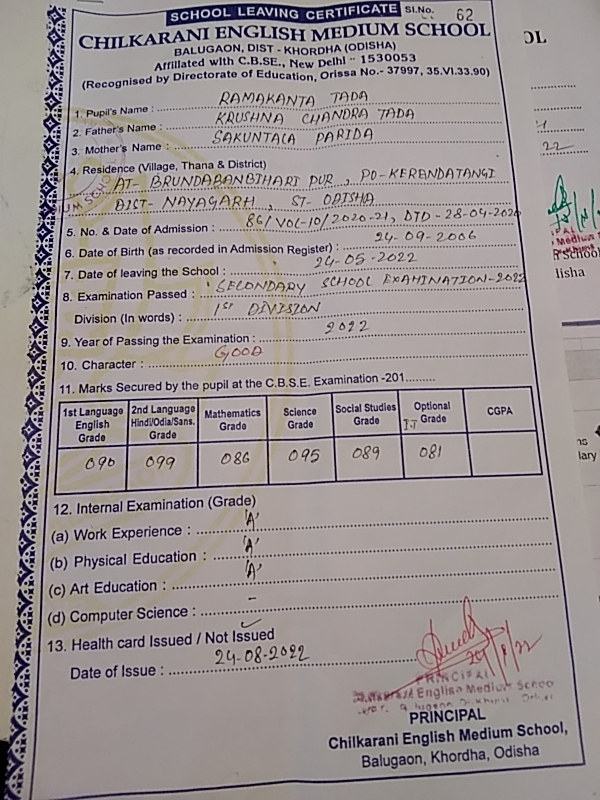 SCHOOL LEAVING CERTIFICATE Sl.No. 62
CHILKARANI ENGLISH MEDIUM SCHOOL
BALUGAON, DIST - KHORDHA (ODISHA)
Affiliated with C.B.SE., New Delhi - 1530053
(Recognised by Directorate of Education, Orissa No.- 37997, 35.VI.33.90)
1. Pupil's Name : RAMAKANTA TADA
2. Father's Name : KRUSHNA CHANDRA TADA
3. Mother's Name : SAKUNTALA PARIDA
4. Residence (Village, Thana & District)
AT- BRUNDABANBIHARI PUR, PO-KERANDATANGI
DIST- NAYAGARH, ST- ODISHA
5. No. & Date of Admission : 86/VOL-10/2020-21, DTD - 28-04-2020
6. Date of Birth (as recorded in Admission Register) : 24-09-2006
7. Date of leaving the School : 24-05-2022
8. Examination Passed : SECONDARY SCHOOL EXAMINATION-2022
Division (In words) : 1ST DIVISION
9. Year of Passing the Examination : 2022
10. Character : GOOD
11. Marks Secured by the pupil at the C.B.S.E. Examination -201
1st Language English Grade 2nd Language Hindi/Odia/Sans. Grade Mathematics Grade Science Grade Social Studies Grade Optional IT Grade CGPA
090 099 086 095 089 081
12. Internal Examination (Grade)
(a) Work Experience : 'A'
(b) Physical Education : 'A'
(c) Art Education : 'A'
(d) Computer Science : -
13. Health card Issued / Not Issued
Date of Issue : 24-08-2022
PRINCIPAL
English Medium School
PRINCIPAL
Chilkarani English Medium School,
Balugaon, Khordha, Odisha
OL
22
Medium
School
lisha